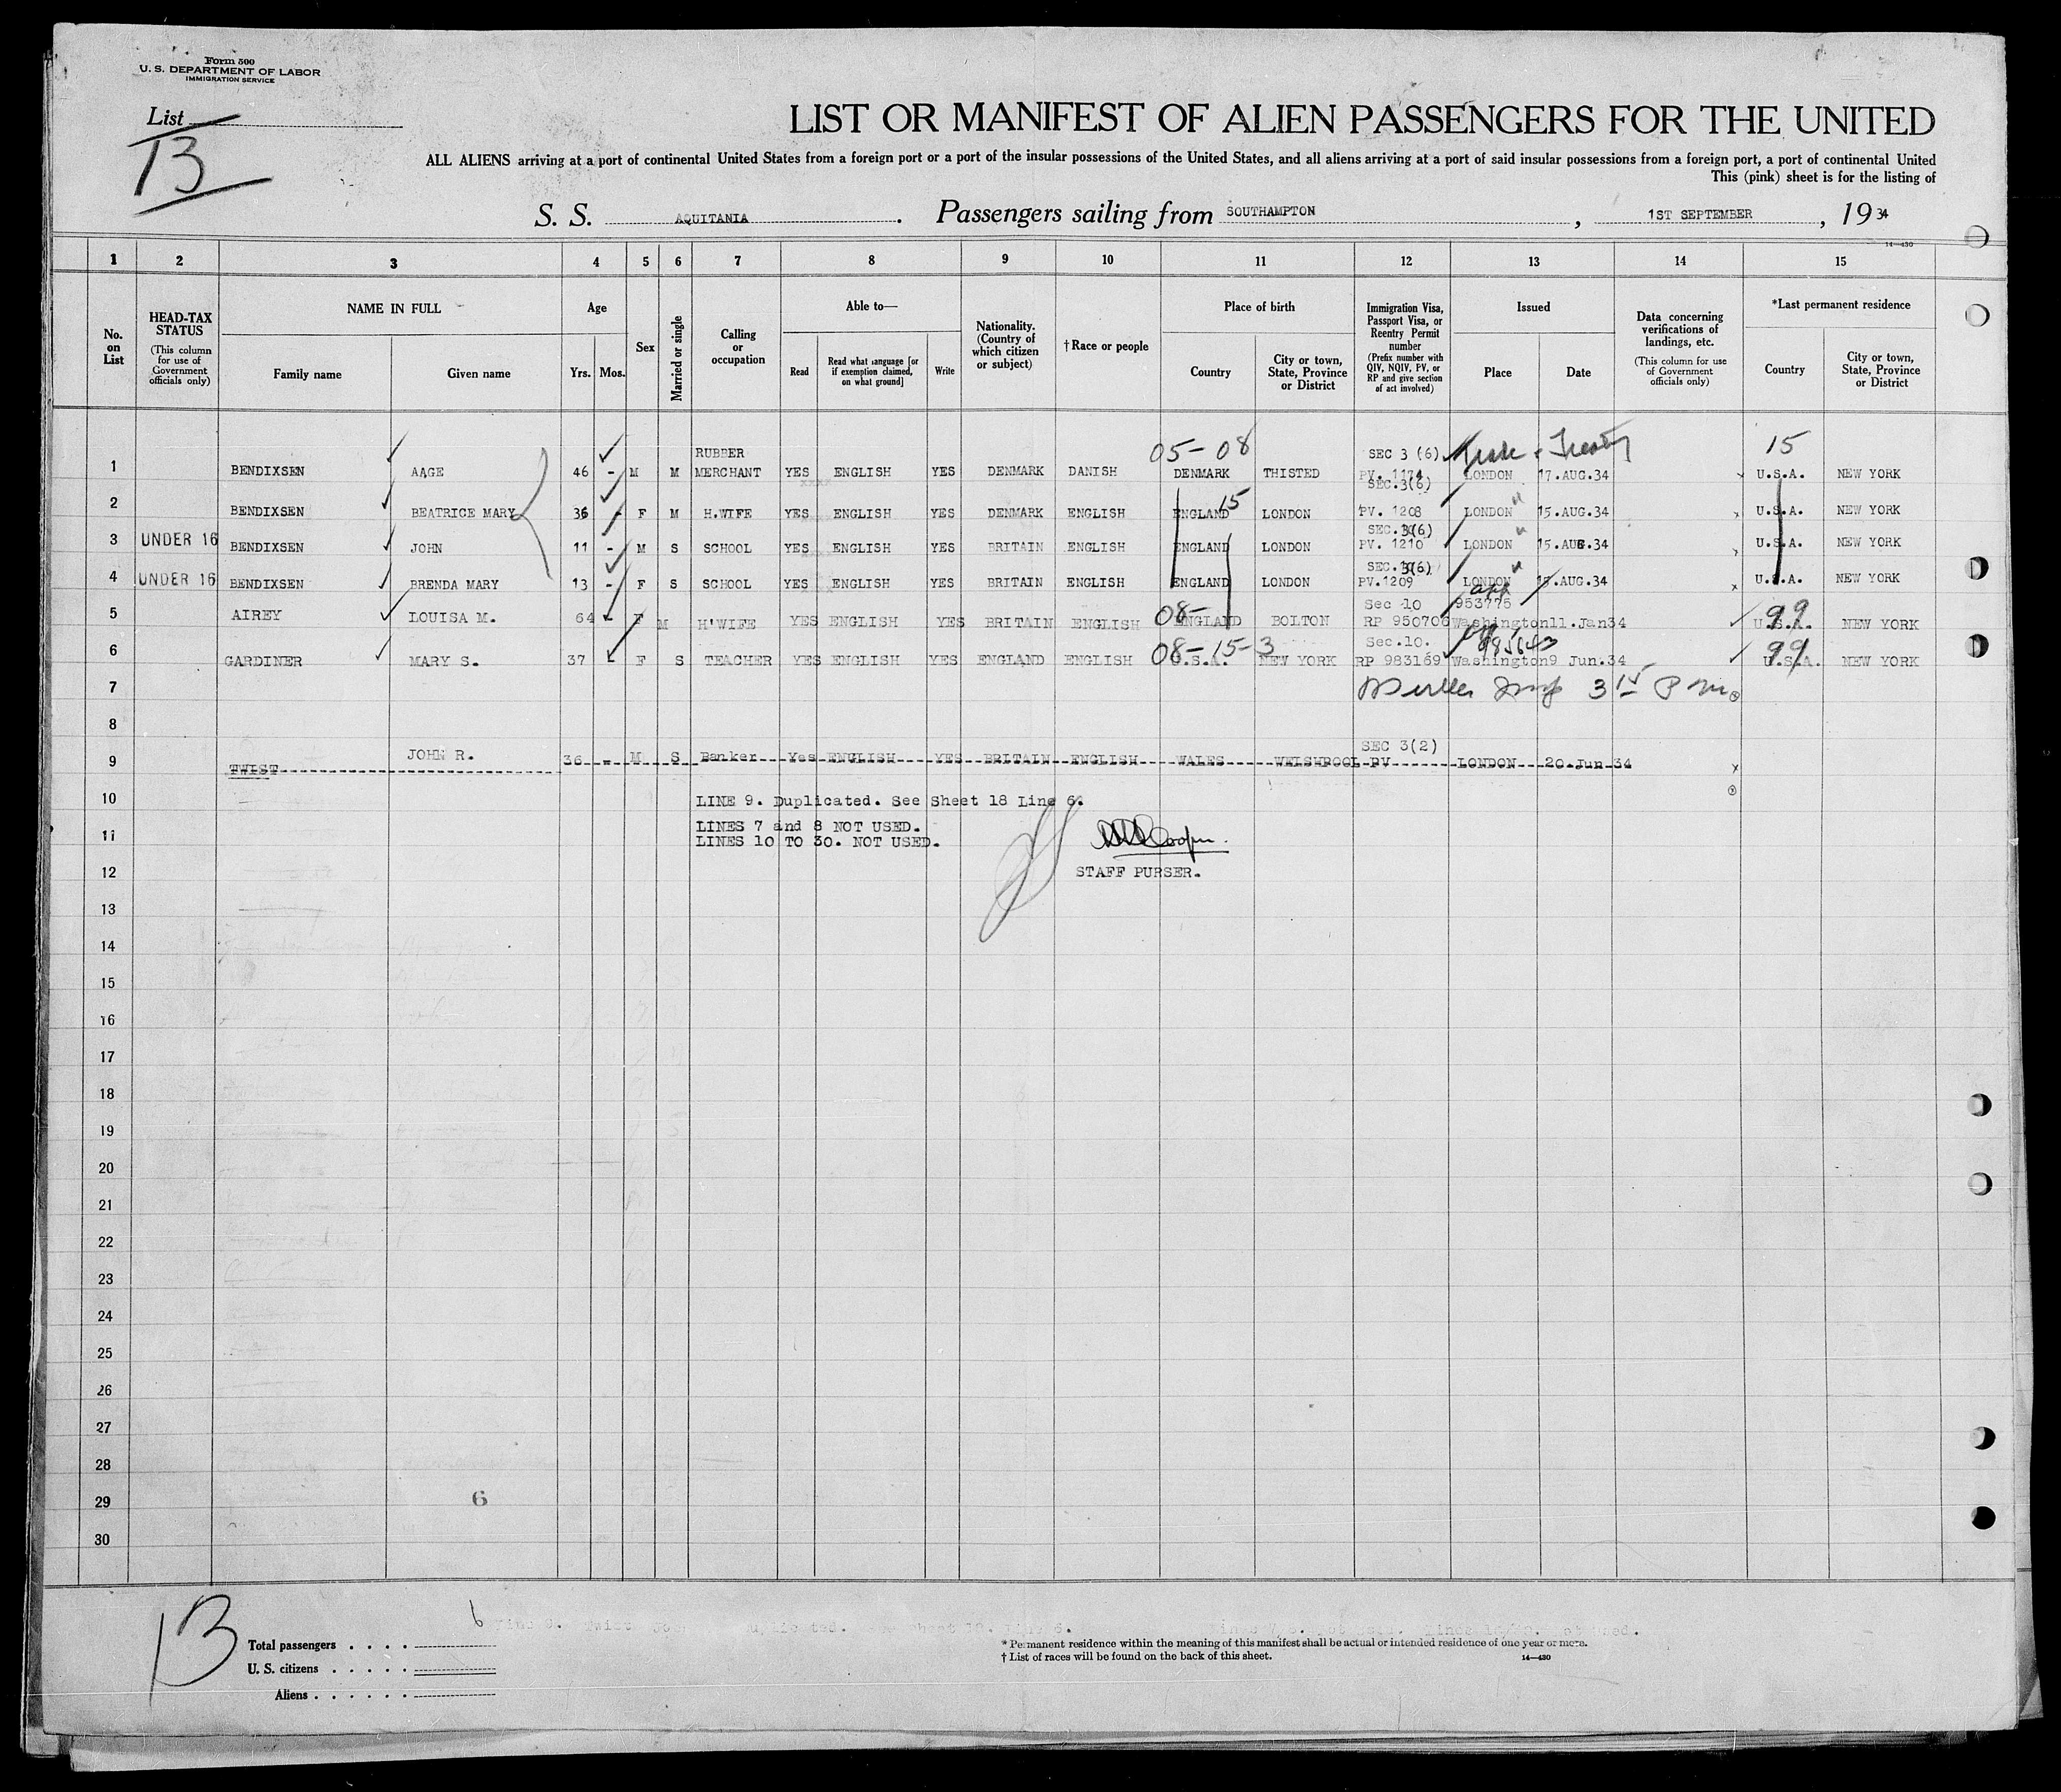 Form 500
U. S. DEPARTMENT OF LABOR
IMMIGRATION SERVICE
List
13
LIST OR MANIFEST OF ALIEN PASSENGERS FOR THE UNITED
ALL ALIENS arriving at a port of continental United States from a foreign port or a port of the insular possessions of the United States, and all aliens arriving at a port of said insular possessions from a foreign port, a port of continental United
This (pink) sheet is for the listing of
S. S. AQUITANIA. Passengers sailing from SOUTHAMPTON, 1ST SEPTEMBER, 1934
14—430
1 2 3 4 5 6 7 8 9 10 11 12 13 14 15
No. on List
HEAD-TAX STATUS
(This column for use of Government officials only)
NAME IN FULL
Family name Given name
Age
Yrs. Mos.
Sex
Married or single
Calling or occupation
Able to—
Read
Read what language [or if exemption claimed, on what ground]
Write
Nationality. (Country of which citizen or subject)
†Race or people
Place of birth
Country
City or town, State, Province or District
Immigration Visa, Passport Visa, or Reentry Permit number
(Prefix number with QIV, NQIV, PV, or RP and give section of act involved)
Issued
Place Date
Data concerning verifications of landings, etc.
(This column for use of Government officials only)
*Last permanent residence
Country
City or town, State, Province or District
RUBBER 05-08 SEC 3 (6) Trade - Treaty 15
1 BENDIXSEN AAGE 46 - M M MERCHANT YES ENGLISH YES DENMARK DANISH DENMARK THISTED PV. 1174 LONDON 17.AUG.34 U.S.A. NEW YORK
SEC.3(6)
2 BENDIXSEN BEATRICE MARY 36 - F M H.WIFE YES ENGLISH YES DENMARK ENGLISH ENGLAND 15 LONDON PV. 1208 LONDON " 15.AUG.34 U.S.A. NEW YORK
SEC.3(6)
3 UNDER 16 BENDIXSEN JOHN 11 - M S SCHOOL YES ENGLISH YES BRITAIN ENGLISH ENGLAND LONDON PV. 1210 LONDON " 15.AUG.34 U.S.A. NEW YORK
SEC.3(6)
4 UNDER 16 BENDIXSEN BRENDA MARY 13 - F S SCHOOL YES ENGLISH YES BRITAIN ENGLISH ENGLAND LONDON PV.1209 LONDON " 15.AUG.34 U.S.A. NEW YORK
Sec 10 app 953775
5 AIREY LOUISA M. 64 - F M H'WIFE YES ENGLISH YES BRITAIN ENGLISH 08- ENGLAND BOLTON RP 950706 Washington 11.Jan34 99 U.S.A. NEW YORK
Sec.10. 985643
6 GARDINER MARY S. 37 - F S TEACHER YES ENGLISH YES ENGLAND ENGLISH 08-15-3 U.S.A. NEW YORK RP 983169 Washington 9 Jun.34 99 U.S.A. NEW YORK
7 3 15 P m
8
SEC 3(2)
9 TWIST JOHN R. 36 - M S Banker Yes ENGLISH YES BRITAIN ENGLISH WALES WELSHPOOL PV LONDON 20.Jun 34
10 LINE 9. Duplicated. See Sheet 18 Line 6.
LINES 7 and 8 NOT USED.
11 LINES 10 TO 30. NOT USED.
Cooper.
12 STAFF PURSER.
13
14
15
16
17
18
19
20
21
22
23
24
25
26
27
28
29 6
30
13
6
Total passengers . . . .
U. S. citizens . . . . .
Aliens . . . . . .
*Permanent residence within the meaning of this manifest shall be actual or intended residence of one year or more.
†List of races will be found on the back of this sheet.
14—430